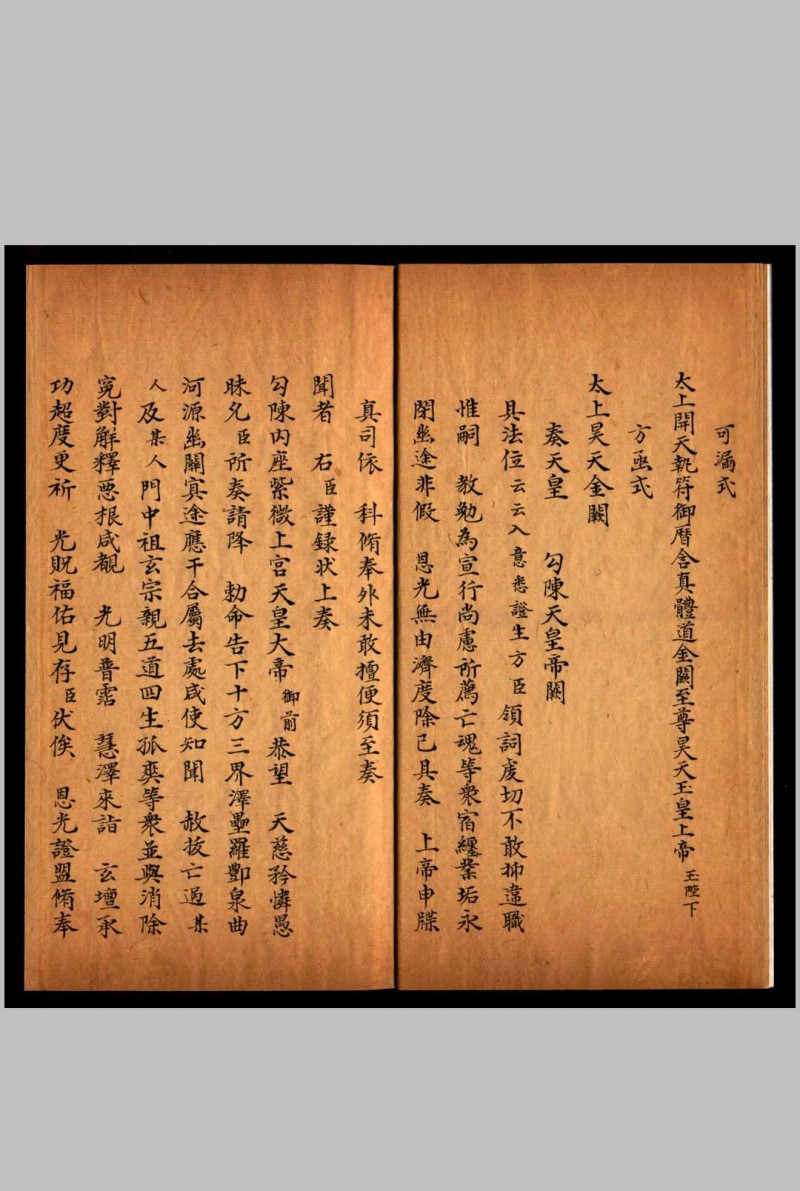 可漏式
太上開天執符御曆含真體道金闕至尊昊天玉皇上帝 玉陛下
方函式
太上昊天金闕
奏天皇 勾陳天皇帝闕
具法位云云入意悉證生方臣 領詞虔切不敢抑違職
惟嗣 教勉為宣行尚慮所薦亡魂等衆宿纏業垢永
閉幽途非假 恩光無由濟度除已具奏 上帝申牒
真司依 科脩奉外未敢擅便須至奏
聞者 右臣謹錄狀上奏
勾陳內座紫微上宫天皇大帝 御前 恭望 天慈矜憐愚
昧允臣所奏請降 勅命告下十方三界澤壘羅酆泉曲
河源幽關寘途應干合屬去處咸使知聞 赦拔亡過某
人及某人門中祖玄宗親五道四生孤爽等衆並與消除
寃對解釋惡根咸覩 光明普霑 慧澤來詣 玄壇承
功超度更祈 光貺福佑見存臣伏俟 恩光證盟脩奉